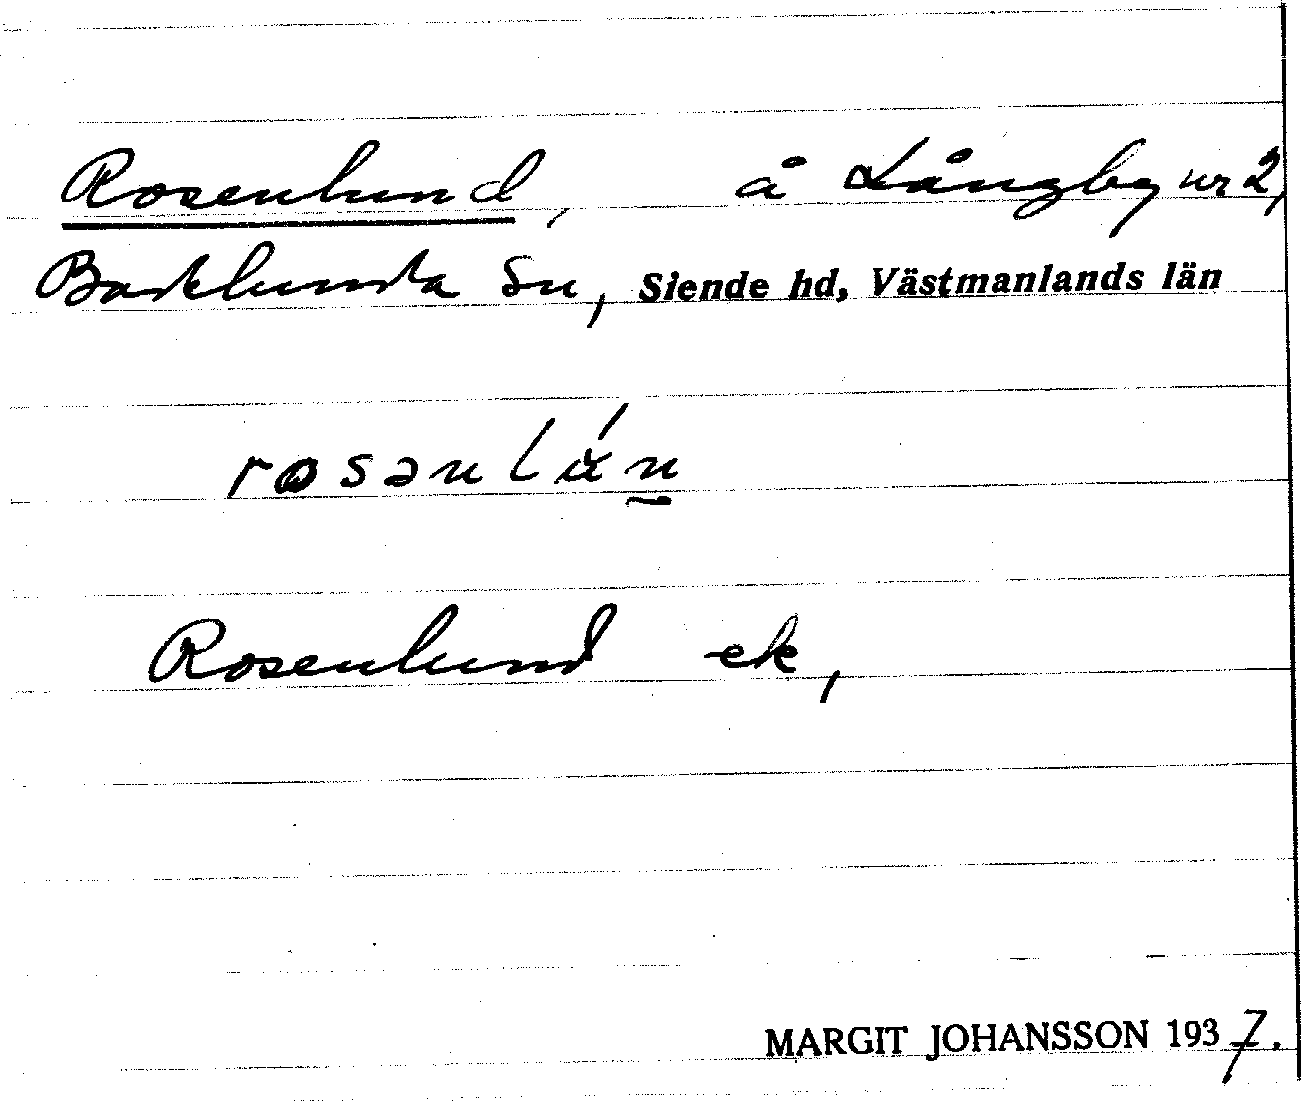 Rosenlund, å Långby nr 2,
Barklunda Sn, Siende hd, Västmanlands län
rosənlún
Rosenlund ek,
MARGIT JOHANSSON 1937.